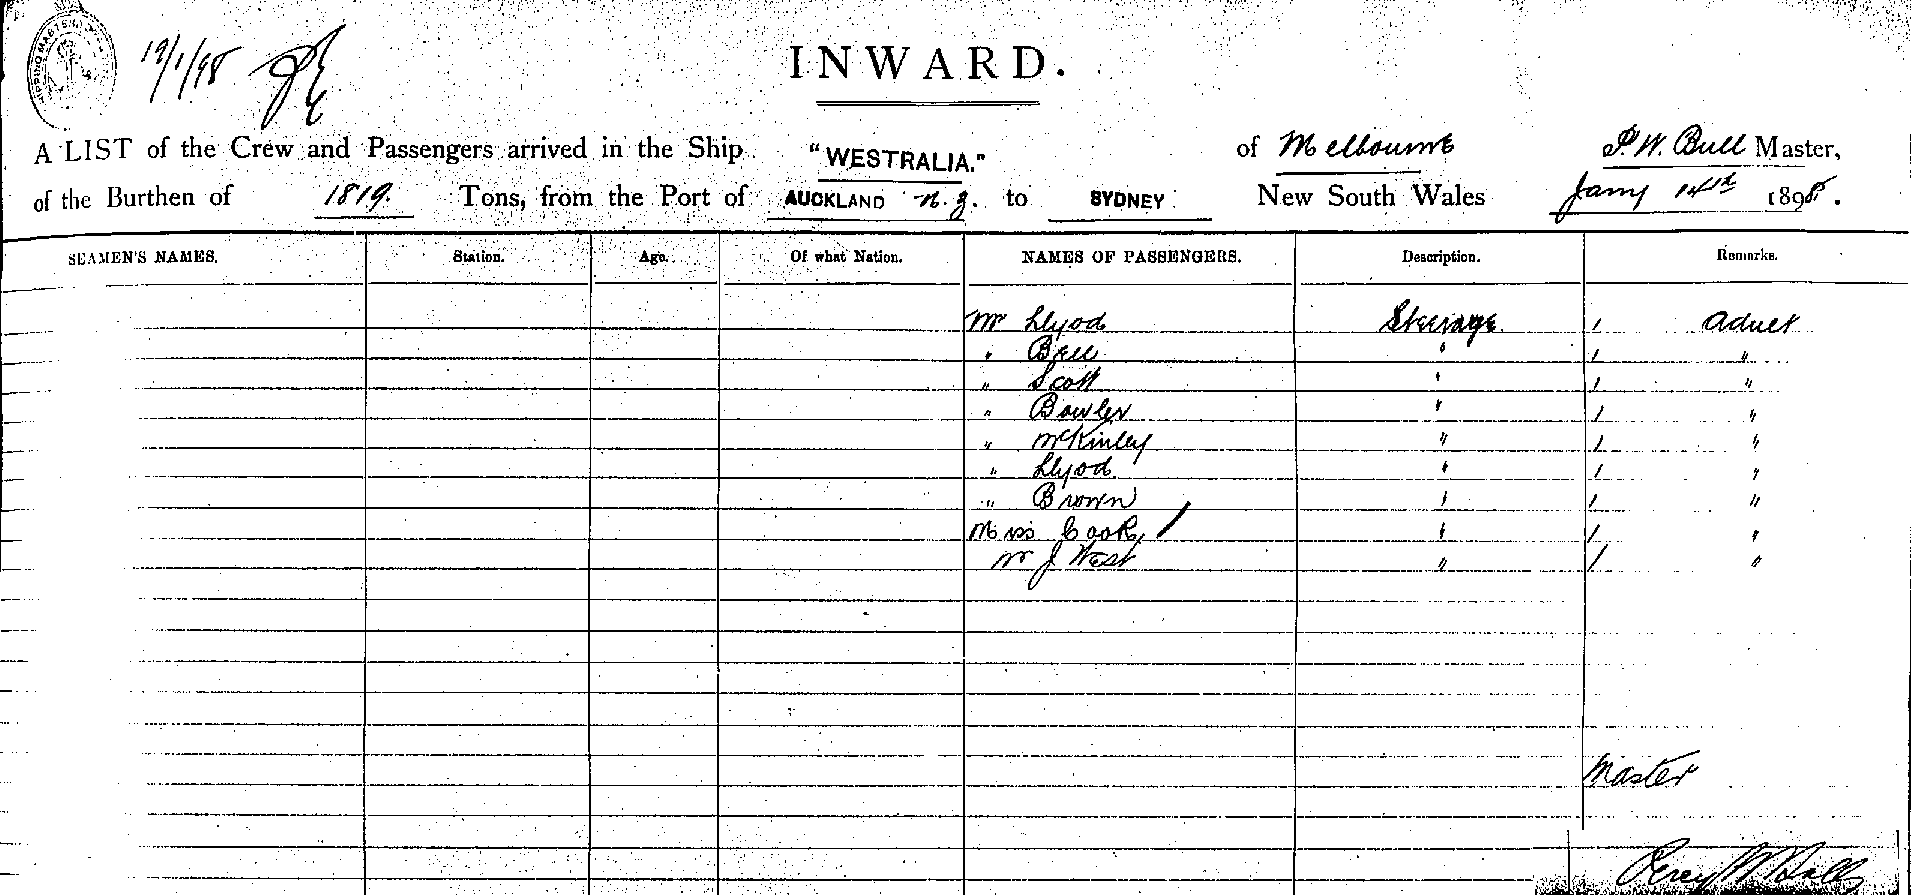 19/1/98
INWARD.
A LIST of the Crew and Passengers arrived in the Ship "WESTRALIA." of Melbourne P. W. Bull Master,
of the Burthen of 1819. Tons, from the Port of AUCKLAND N.Z. to SYDNEY New South Wales Jany 14th 1898.
SEAMEN'S NAMES. Station. Age. Of what Nation. NAMES OF PASSENGERS. Description. Remarks.
Mr Llyod Steerage 1 Adult
" Bell " 1 "
" Scott " 1 "
" Bowler " 1 "
" McKinley " 1 "
" Llyod " 1 "
" Brown " 1 "
Miss Cook / " 1 "
Mr J West " 1 "
Master
Percy